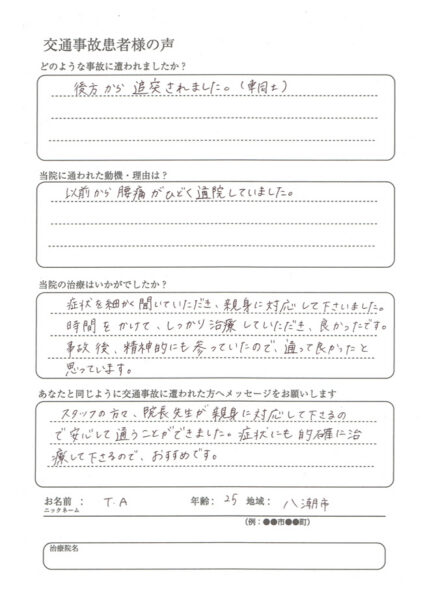 交通事故患者様の声
どのような事故に遭われましたか？
後方から追突されました。(車同士)
当院に通われた動機・理由は？
以前から腰痛がひどく通院していました。
当院の治療はいかがでしたか？
症状を細かく聞いていただき、親身に対応して下さいました。
時間をかけて、しっかり治療していただき、良かったです。
事故後、精神的にも参っていたので、通って良かったと
思っています。
あなたと同じように交通事故に遭われた方へメッセージをお願いします
スタッフの方々、院長先生が親身に対応して下さるの
で安心して通うことができました。症状にも的確に治
療して下さるので、おすすめです。
お名前 : T.A 年齢: 25 地域: 八潮市
ニックネーム
(例：●●市●●町)
治療院名